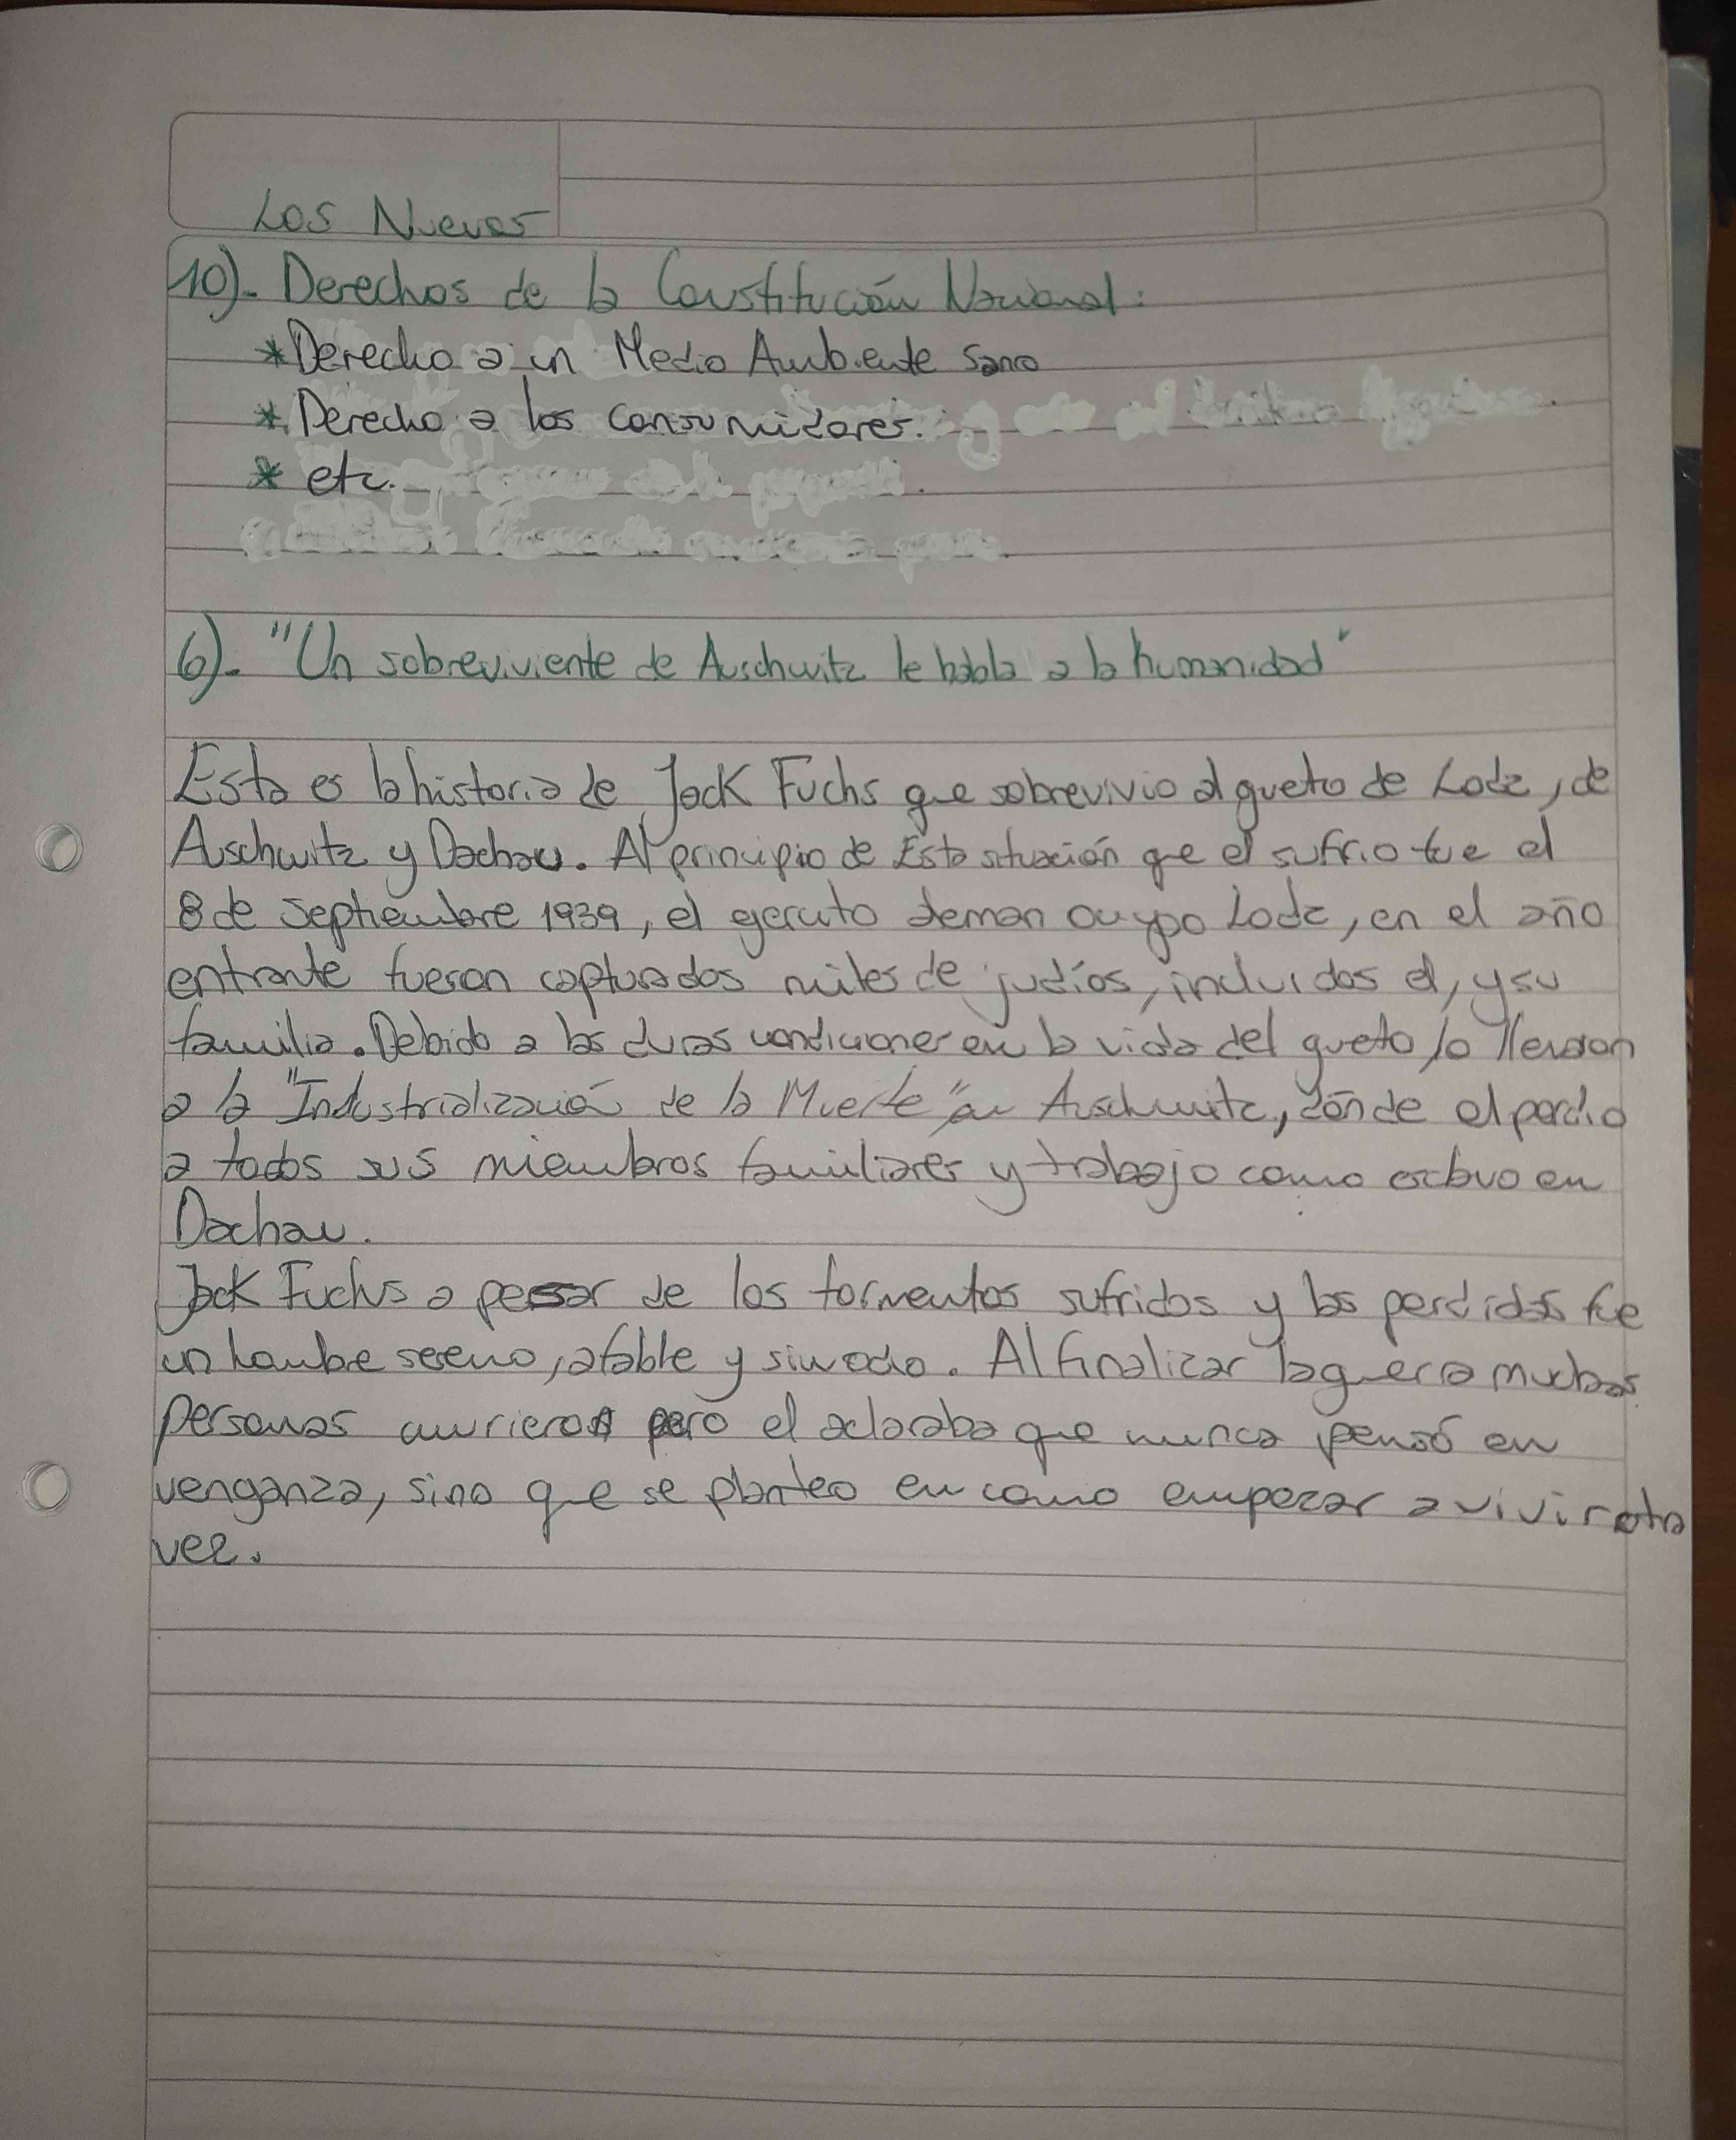 Los Nuevos
10)- Derechos de la Constitución Nacional:
* Derecho a un Medio Ambiente Sano
* Derecho a los consumidores.
* etc.
6)- "Un sobreviviente de Auschwitz le habla a la humanidad"
Esta es la historia de Jack Fuchs que sobrevivio al gueto de Lodz, de
Auschwitz y Dachau. Al principio de Esta situación que el sufrio fue el
8 de Septiembre 1939, el ejercito aleman ocupo Lodz, en el año
entrante fueron capturados miles de judíos, incluidos el, y su
familia. Debido a las duras condiciones en la vida del gueto lo llevaron
a la "Industrialización de la Muerte" en Auschwitz, dónde el perdio
a todos sus miembros familiares y trabajo como esclavo en
Dachau.
Jack Fuchs a pesar de los tormentos sufridos y las perdidas fue
un hombre sereno, afable y sin odio. Al finalizar la guerra muchas
personas murieron pero el aclaraba que nunca pensó en
venganza, sino que se planteo en como empezar a vivir otra
vez.